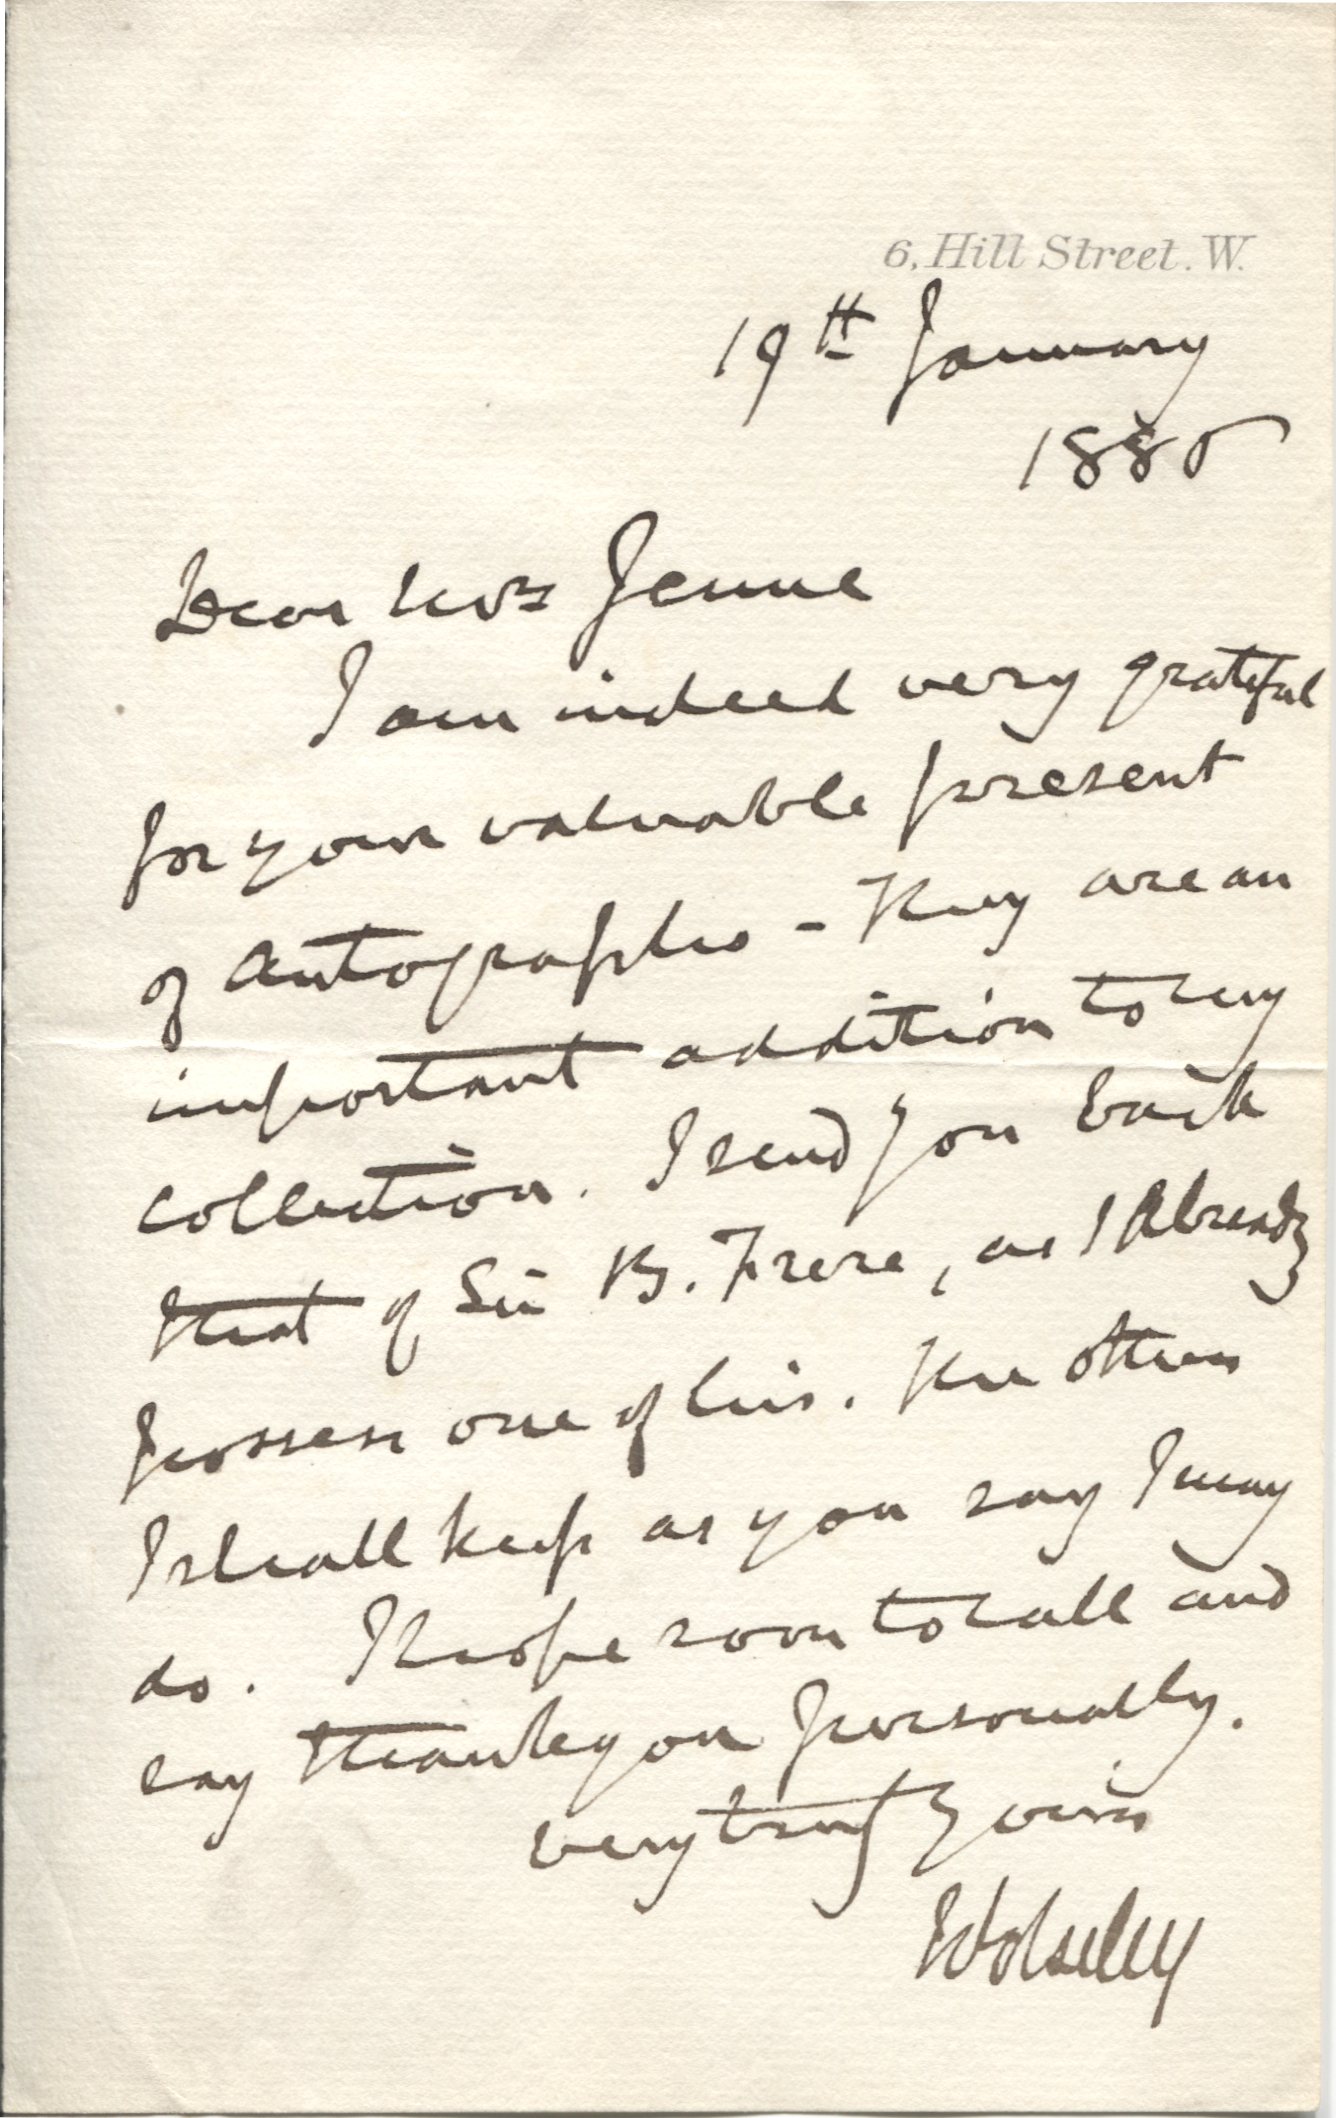 6, Hill Street. W.
19th January
1886
Dear Mrs Jeune
I am indeed very grateful
for your valuable present
of autographs - They are an
important addition to my
collection. I send you back
that of Sir B. Frere, as I already
possess one of his. The others
I shall keep as you say I may
do. I hope soon to call and
say thank you personally.
Very truly yours
Wolseley